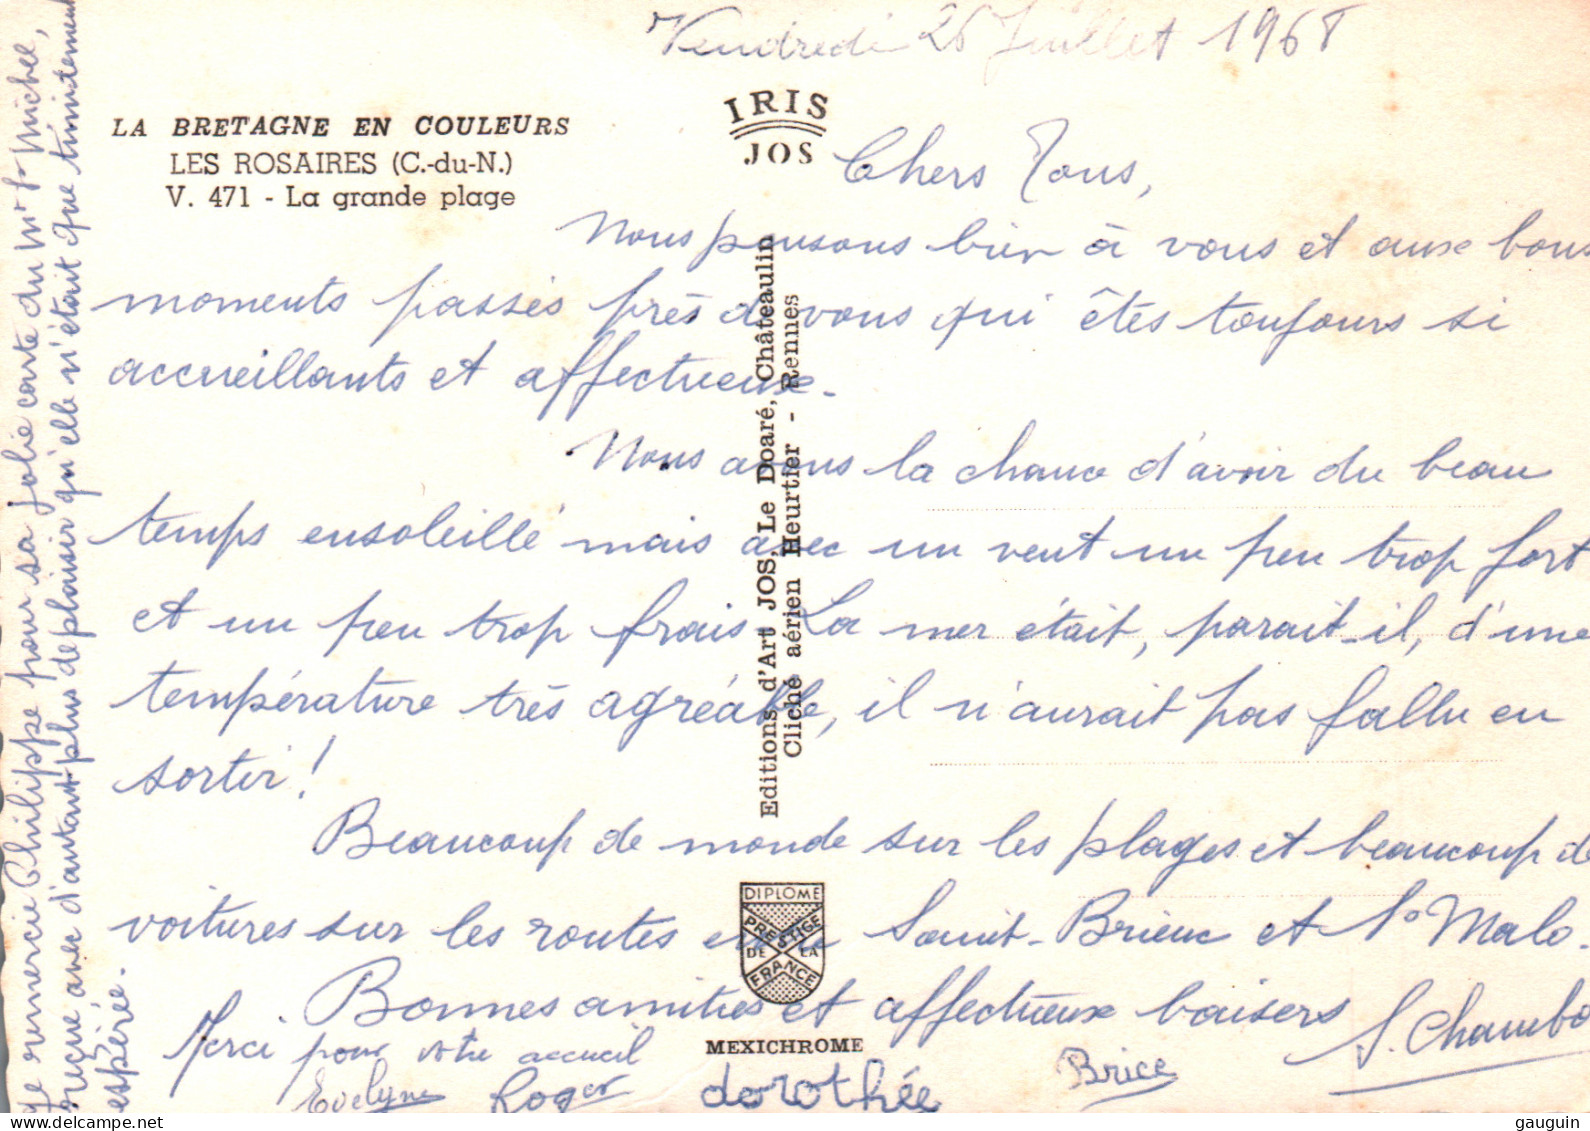 Vendredi 26 Juillet 1968
LA BRETAGNE EN COULEURS
LES ROSAIRES (C.-du-N.)
V. 471 - La grande plage
IRIS
JOS
Chers Tous,
Nous pensons bien à vous et aux bons
moments passés près de vous qui êtes toujours si
accueillants et affectueux.
Nous avons la chance d'avoir du beau
temps ensoleillé mais avec un vent un peu trop fort
et un peu trop frais. La mer était, parait-il, d'une
température très agréable, il n'aurait pas fallu en
sortir !
Beaucoup de monde sur les plages et beaucoup de
voitures sur les routes entre Saint-Brieuc et St Malo.
Bonnes amitiés et affectueux baisers
Merci pour votre accueil
S. Chambo
Evelyne Roger dorothée Brice
Editions d'Art JOS, Le Doaré, Châteaulin
Cliché aérien Heurtier - Rennes
DIPLOME
PRESTIGE
DE LA
FRANCE
MEXICHROME
Je remercie Philippe pour sa jolie carte du Mt St Michel,
reçue avec d'autant plus de plaisir qu'elle n'était que timidement
espérée.
gauguin